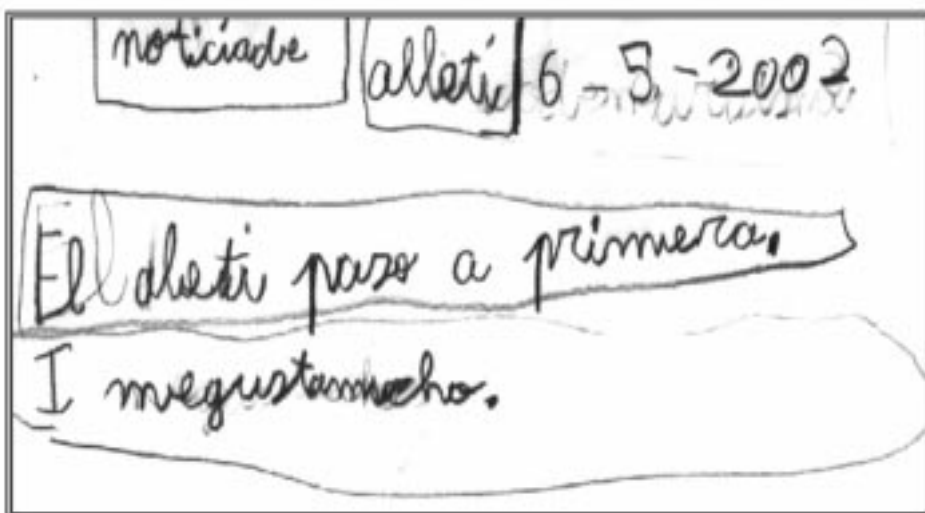 noticiade alleti 6-5-2002
El aleti paso a primera.
I megustamucho.